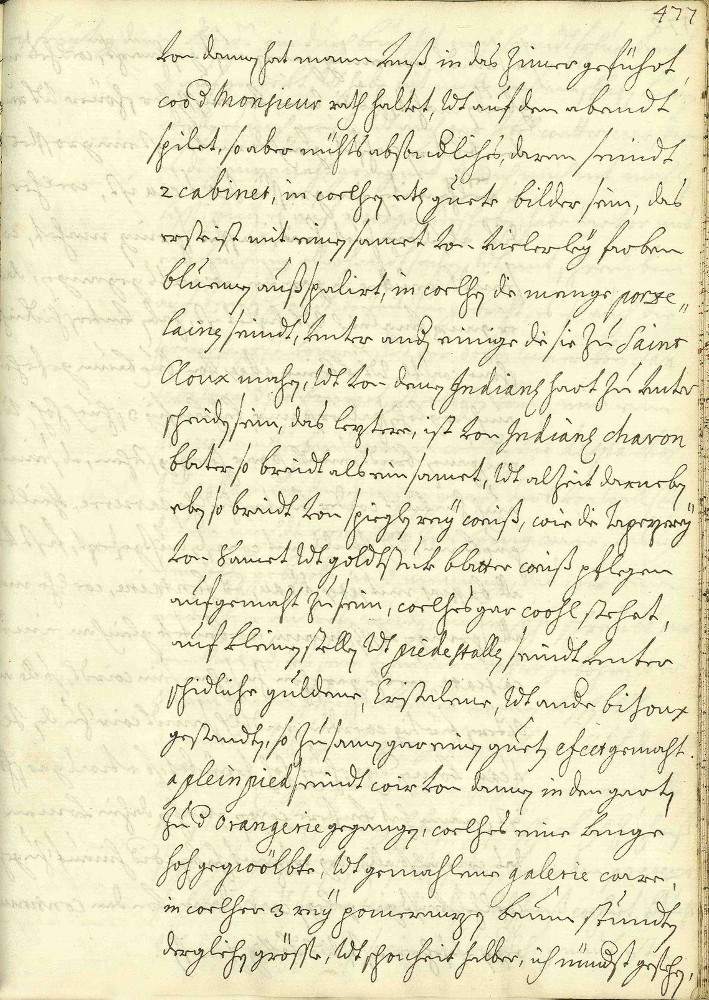 477
von dannen hat mann unß in das Zimer geführt,
wo d Monsieur rath haltet, Vdt auf den abendt
spilet, so aber nichts absondliches, daran seindt
2 cabinet, in welchen etl guete bilder sein, das
erste ist mit einen samet von vielerley farben
bluemen außspalirt, in welchen die menge porze„
lainen seindt, unter andn einige die sie zu Saint
Cloux machen, Vdt von denen Indianl hart zu unter
scheiden sein, das leztere, ist von Indianl charon
bläter so breidt als ein samet, Vdt alzeit darneben
eben so braidt von spieglen reÿ weiß, wie die tapezerey
von Samet Vdt goldtstuk blätter weiß pflegen
aufgemacht zu sein, welches gar wohl stehet,
auf kleinen stellen Vdt piedestallen seindt unter
schidliche guldene, Cristalene, Vdt ande bijoux
gestanden, so zusamen gar einen gueten efect gemacht.
a plein pied seindt wir von dannen in den garten
zu d orangerie gegangen, welches eine lange
hoch gegwölbte, Vdt gemahlene galerie ware,
in welcher 3 reÿ pomeranzen baum stunden
derglichen grösse, Vdt schonheit halber, ich niendst gesehen,